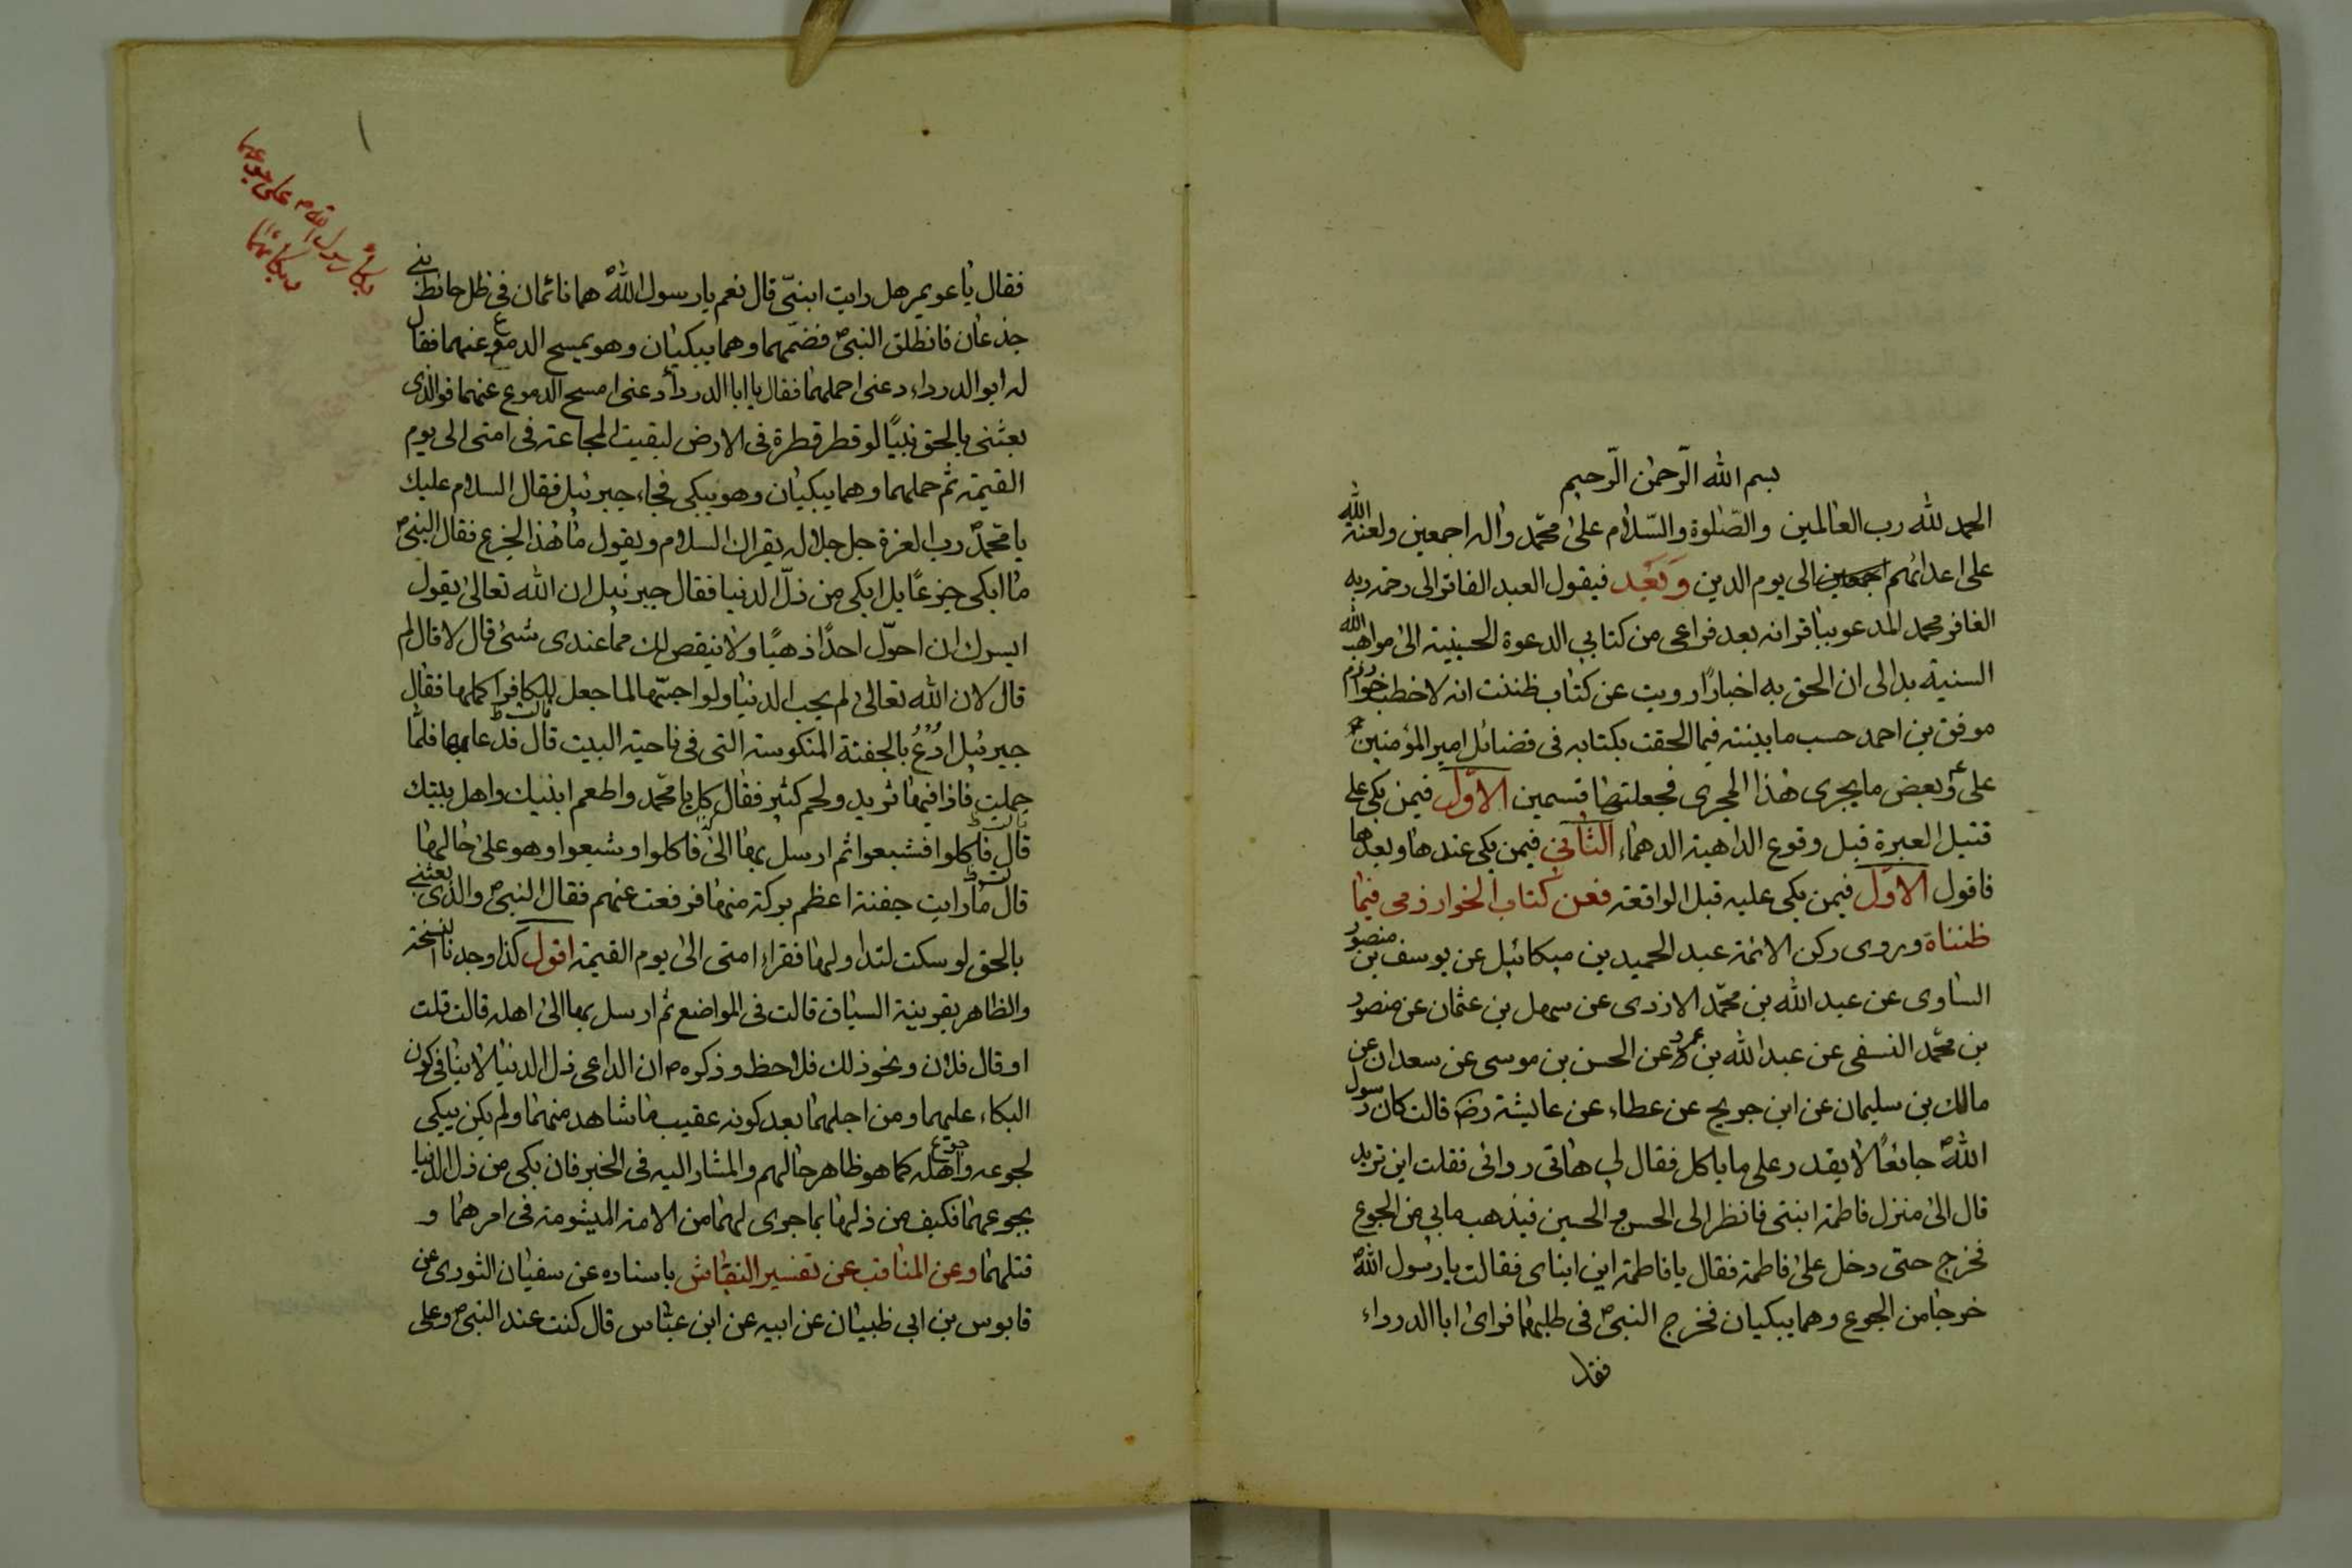 بسم الله الرّحمن الرّحيم
الحمد لله رب العالمين والصّلوة والسّلام على محمّد واله اجمعين ولعنة الله
على اعدائهم اجمعين الى يوم الدين وَبَعْد فيقول العبد الفاتر الى رحمة ربه
الغافر محمد المدعو بباقر انه بعد فراغى من كتابي الدعوة الحسينية الى مواهب الله
السنية بدا لى ان الحق به اخبارًا رويت عن كتاب ظننت انه لاخطب خوارزم
موفق بن احمد حسب ما بينته فيما الحقت بكتابه فى فضائل امير المؤمنين
على ع وبعض ما يجرى هذا المجرى فجعلتها قسمين الاوّل فيمن بكى على
قتيل العبرة قبل وقوع الداهية الدهماء الثاني فيمن بكى عندها وبعدها
فاقول الاوّل فيمن بكى عليه قبل الواقعة فعن كتاب الخوارزمى فيما
ظنناة وروى ركن الائمة عبد الحميد بن ميكائيل عن يوسف بن منصور
الساوى عن عبد الله بن محمّد الازدى عن سهل بن عثمان عن منصور
بن محمّد النسفى عن عبد الله بن عمرو عن الحسن بن موسى عن سعدان عن
مالك بن سليمان عن ابن جريج عن عطاء عن عايشة رضه قالت كان رسول
الله ص جائعًا لا يقدر على ما ياكل فقال لي هاتى ردائى فقلت اين تريد
قال الى منزل فاطمة ابنتى فانظر الى الحسن و الحسين فيذهب مابي من الجوع
فخرج حتى دخل على فاطمة فقال يا فاطمة اين ابناى فقالت يا رسول الله ص
خرجا من الجوع وهما يبكيان فخرج النبى ص فى طلبهما فراى ابا الدرداء
فقا
١
بكاء رسول الله ص على جوعهما
وبكائهما
فقال يا عويمر هل رايت ابنيّ قال نعم يا رسول الله ص هما نائمان فى ظل حائط بني
جذعان فانطلق النبى ص فضمّهما وهما يبكيان وهو يمسح الدموع عنهما فقال
له ابو الدرداء دعنى احملهما فقال يا ابا الدرداء دعنى امسح الدموع عنهما فوالذى
بعثنى بالحق نبيًا لو قطر قطرة فى الارض لبقيت المجاعة فى امتى الى يوم
القيمة ثم حملهما وهما يبكيان وهو يبكى فجاء جبرئيل فقال السلام عليك
يا محمّد رب العزة جل جلاله يقرأك السلام ويقول ما هذا الجزع فقال النبى ص
ما ابكى جزعًا بل ابكى من ذلّ الدنيا فقال جبرئيل ان الله تعالى يقول
ايسرك ان احوّل احدًا ذهبًا ولا ينقص لك مما عندى شئ قال لا قال لم
قال لان الله تعالى لم يحب الدنيا ولو احبّها لما جعل للكافر اكلها فقال
جبرئيل ادْعُ بالجفنة المنكوسة التى فى ناحية البيت قال قالت ظ فدعا بها فلمّا
حملت فاذا فيها ثريد ولحم كثير فقال كل يا محمّد واطعم ابنيك واهل بيتك
قال قالت ظ فاكلوا فشبعوا ثم ارسل بها الىّ فاكلوا وشبعوا وهو على حالها
قال لت ظ ما رايت جفنة اعظم بركة منها فرفعت عنهم فقال النبى ص والذى بعثني
بالحق لو سكت لتداولها فقراء امتى الى يوم القيمة اقول كذا وجدنا النسخة
والظاهر بقرينة السياق قالت فى المواضع ثم ارسل بها الى اهله قالت قلت
او قال فلان ونحو ذلك فلاحظ وذكره ص ان الداعى ذل الدنيا لا ينافى كون
البكاء عليهما ومن اجلهما بعد كونه عقيب ما شاهد منهما ولم يكن يبكى
لجوعه و جوع اهله كما هو ظاهر حالهم والمشار اليه فى الخبر فان بكى من ذل الدنيا
بجوعهما فكيف من ذلها بما جرى لهما من الامة الميشومة فى امرهما و
قتلهما وعن المناقب عن تفسير النقاش باسناده عن سفيان الثورى عن
قابوس بن ابي ظبيان عن ابيه عن ابن عباس قال كنت عند النبى ص وعلى